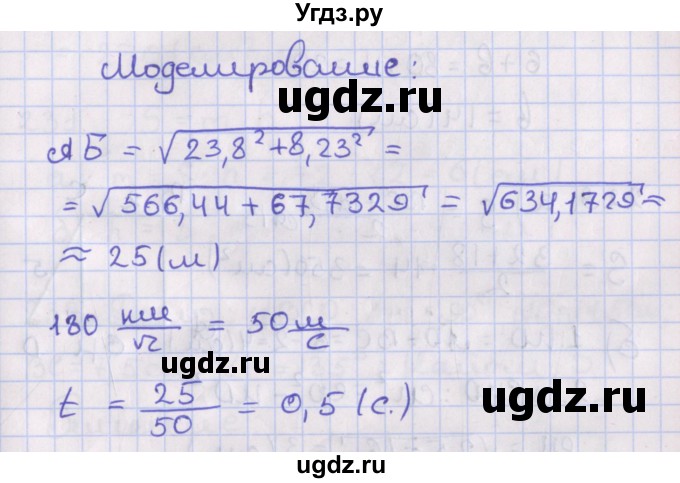 Угдз.ру
Моделирование:
ugdz.ru
АБ = √23,8² + 8,23² =
= √566,44 + 67,7329 = √634,1729 ≈
ugdz.ru
≈ 25 (м)
180 км/ч = 50 м/с
ugdz.ru
t = 25/50 = 0,5 (с.)
ugdz.ru
ugdz.ru